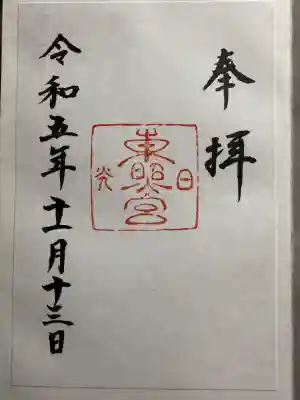 奉拝
日光
東照宮
令和五年十一月十三日